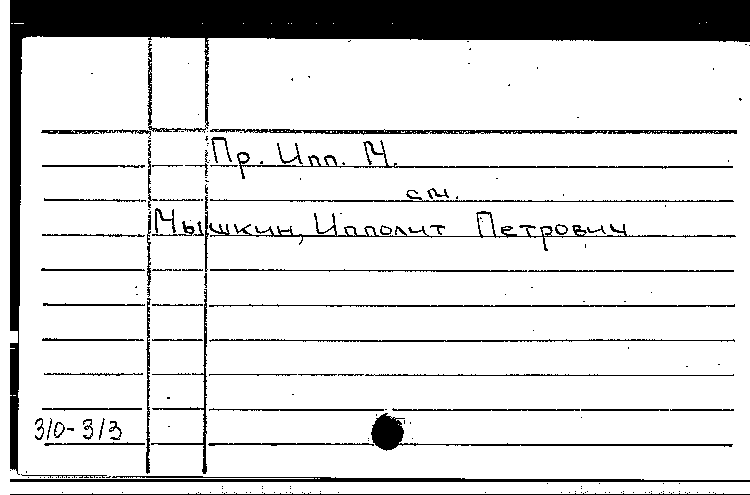 Пр. Ипп. М.
см.
Мышкин, Ипполит Петрович
310-313